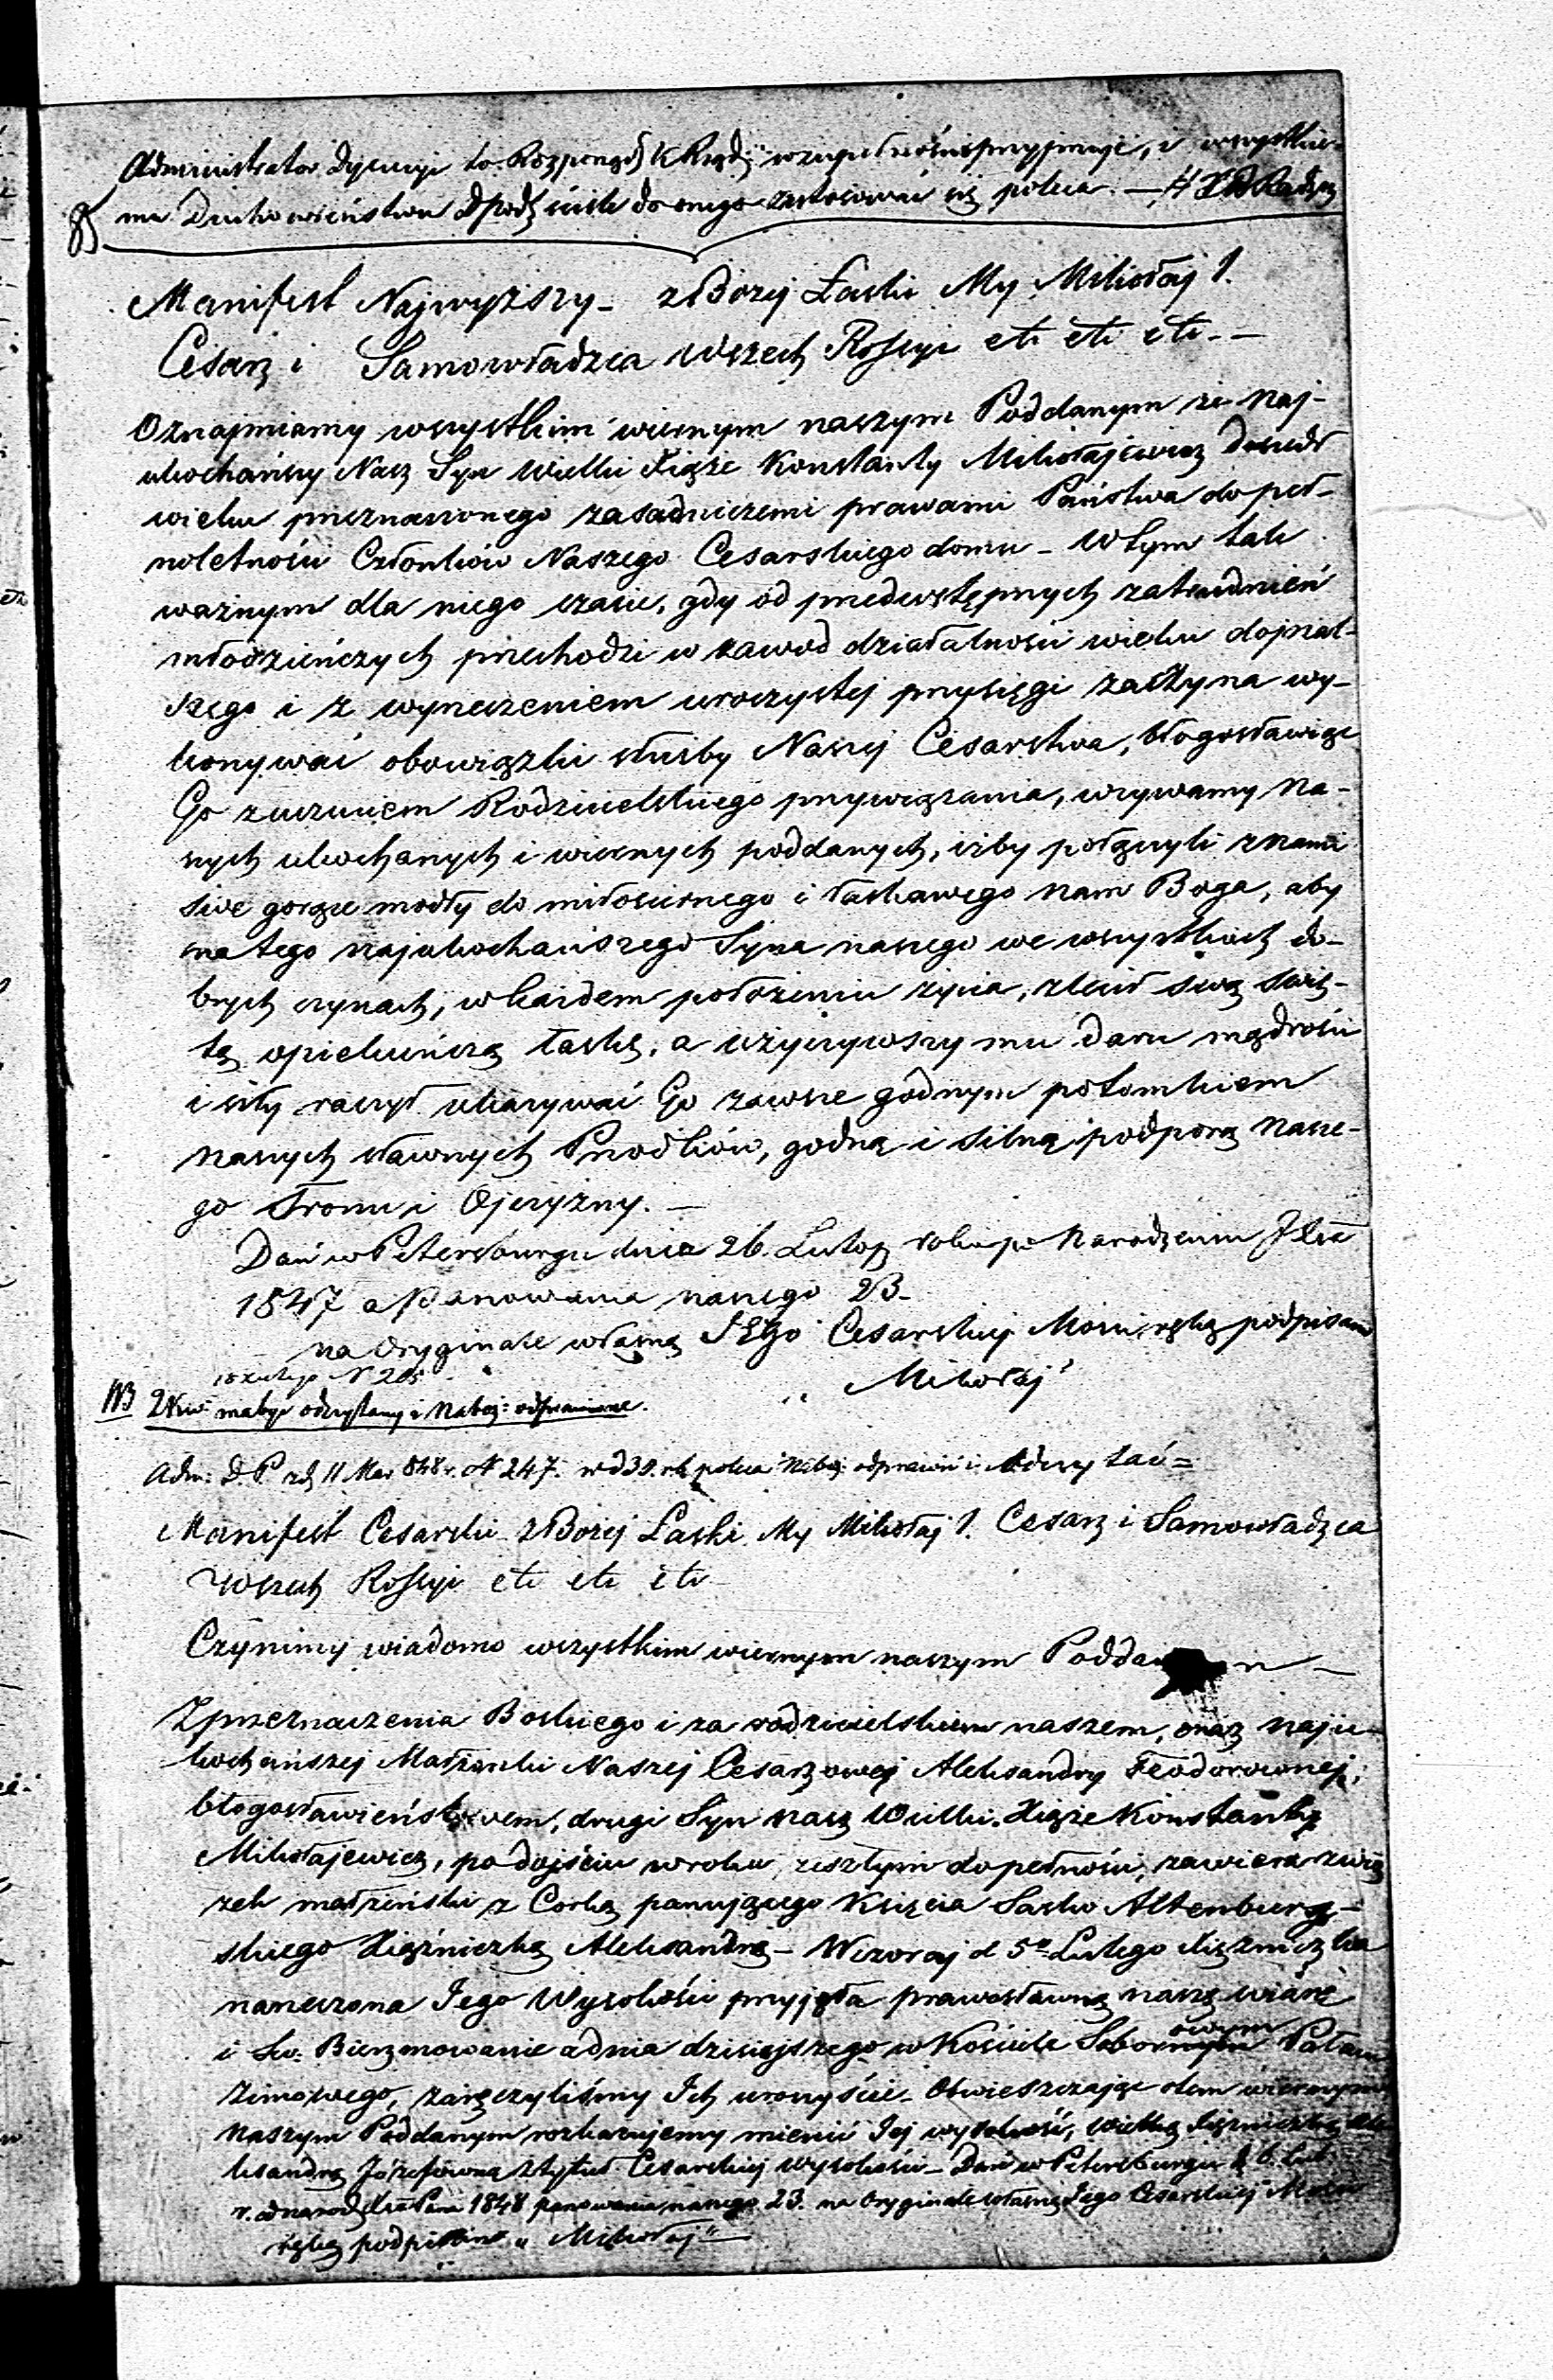 Administrator Dyecezyi to Rozporządz K Rządz: w zupełności przyjmuje, i wszystkie-
mu Duchowieństwu Dpodź ściśle do onego zastosować się poleca. —
Manifest Najwyższy – z Bożej Łaski My Mikołaj I.
Cesarz i Samowładzca Wszech Rossyi etc etc etc. –
Oznajmiamy wszystkim wiernym naszym Poddanym że Naj-
ukochańszy Nasz Syn Wielki Xiąże Konstanty Mikołajewicz Doszedł
wieku przeznaczonego zasadniczemi prawami Państwa do peł-
noletności Członków Naszego Cesarskiego domu – W tym tak
ważnym dla niego czasie, gdy od przedwstępnych zatrudnień
młodzieńczych przechodzi w zawód działalności wieku dojrzal-
szego i z wyrzeczeniem uroczystej przysięgi zaczyna wy-
konywać obowiązki służby Naszej Cesarstwa, błogosławiąc
Go z uczuciem Rodzicielskiego przywiązania, wzywamy Na-
szych ukochanych i wiernych poddanych, iżby połączyli z nami
swe gorące modły do miłosiernego i łaskawego nam Boga, aby
na tego najukochańszego Syna naszego we wszystkich do-
brych czynach, w każdem położeniu życia, zlewał swą świę-
tą opiekuńczą łaskę, a użyczywszy mu daru mądrości
i siły raczył ukazywać Go zawsze godnym potomkiem
naszych sławnych Przodków, godną i silną podporą nasze-
go Tronu i Ojczyzny. —
Dań w Petersburgu dnia 26. Lutop roku po Narodzeniu
1847 a Panowania naszego 23.
na Oryginale własną JEgo Cesarskiej Mości ręką podpisano
18 Lutego N 205
„ Mikołaj"
NB 2 Kw: ma być odczytany i Naboż: odprawione.
Adm: D. P zd 11 Mar 848 r. N 247. poleca Naboż odprawić i Odczytać =
Manifest Cesarski z Bożej Łaski My Mikołaj I. Cesarz i Samowładzca
Wszech Rossyi etc etc etc
Czynimy wiadomo wszystkim wiernym naszym
Z przeznaczenia Boskiego i za rodzicielskiem naszem, oraz naju-
kochańszej Małżonki Naszej Cesarzowej Aleksandry Feodorownej,
błogosławieństwem, drugi Syn nasz Wielki Xiąże Konstanty
Mikołajewicz, po dojściu w roku zeszłym do pełności, zawiera zwią
zek małżeński z Corką panującego Księcia Sasko Altenburg-
skiego Xiężniczką Aleksandrą – Wczoraj d 5º Lutego Xiężniczka
narzeczona Jego Wysokości przyjęła prawosławną naszą wiarę
i Św. Bierzmowanie a dnia dzisiejszego w Kościele Sobornym owym Pałacu
Zimowego, zaręczyliśmy Ich uroczyście. Obwieszczając o tem wiernym
Naszym Poddanym rozkazujemy mienić Jej wysokość, Wielką Xiężniczką Ale
ksandrą Józefowną z tytuł Cesarskiej Wysokości – Dań w Petersburgu d. 6. Lut
r. od narodz Xta Pana 1848 panowania naszego 23. na Oryginale własną Jego Cesarskiej Mości
ręką podpisano „ Mikołaj" —